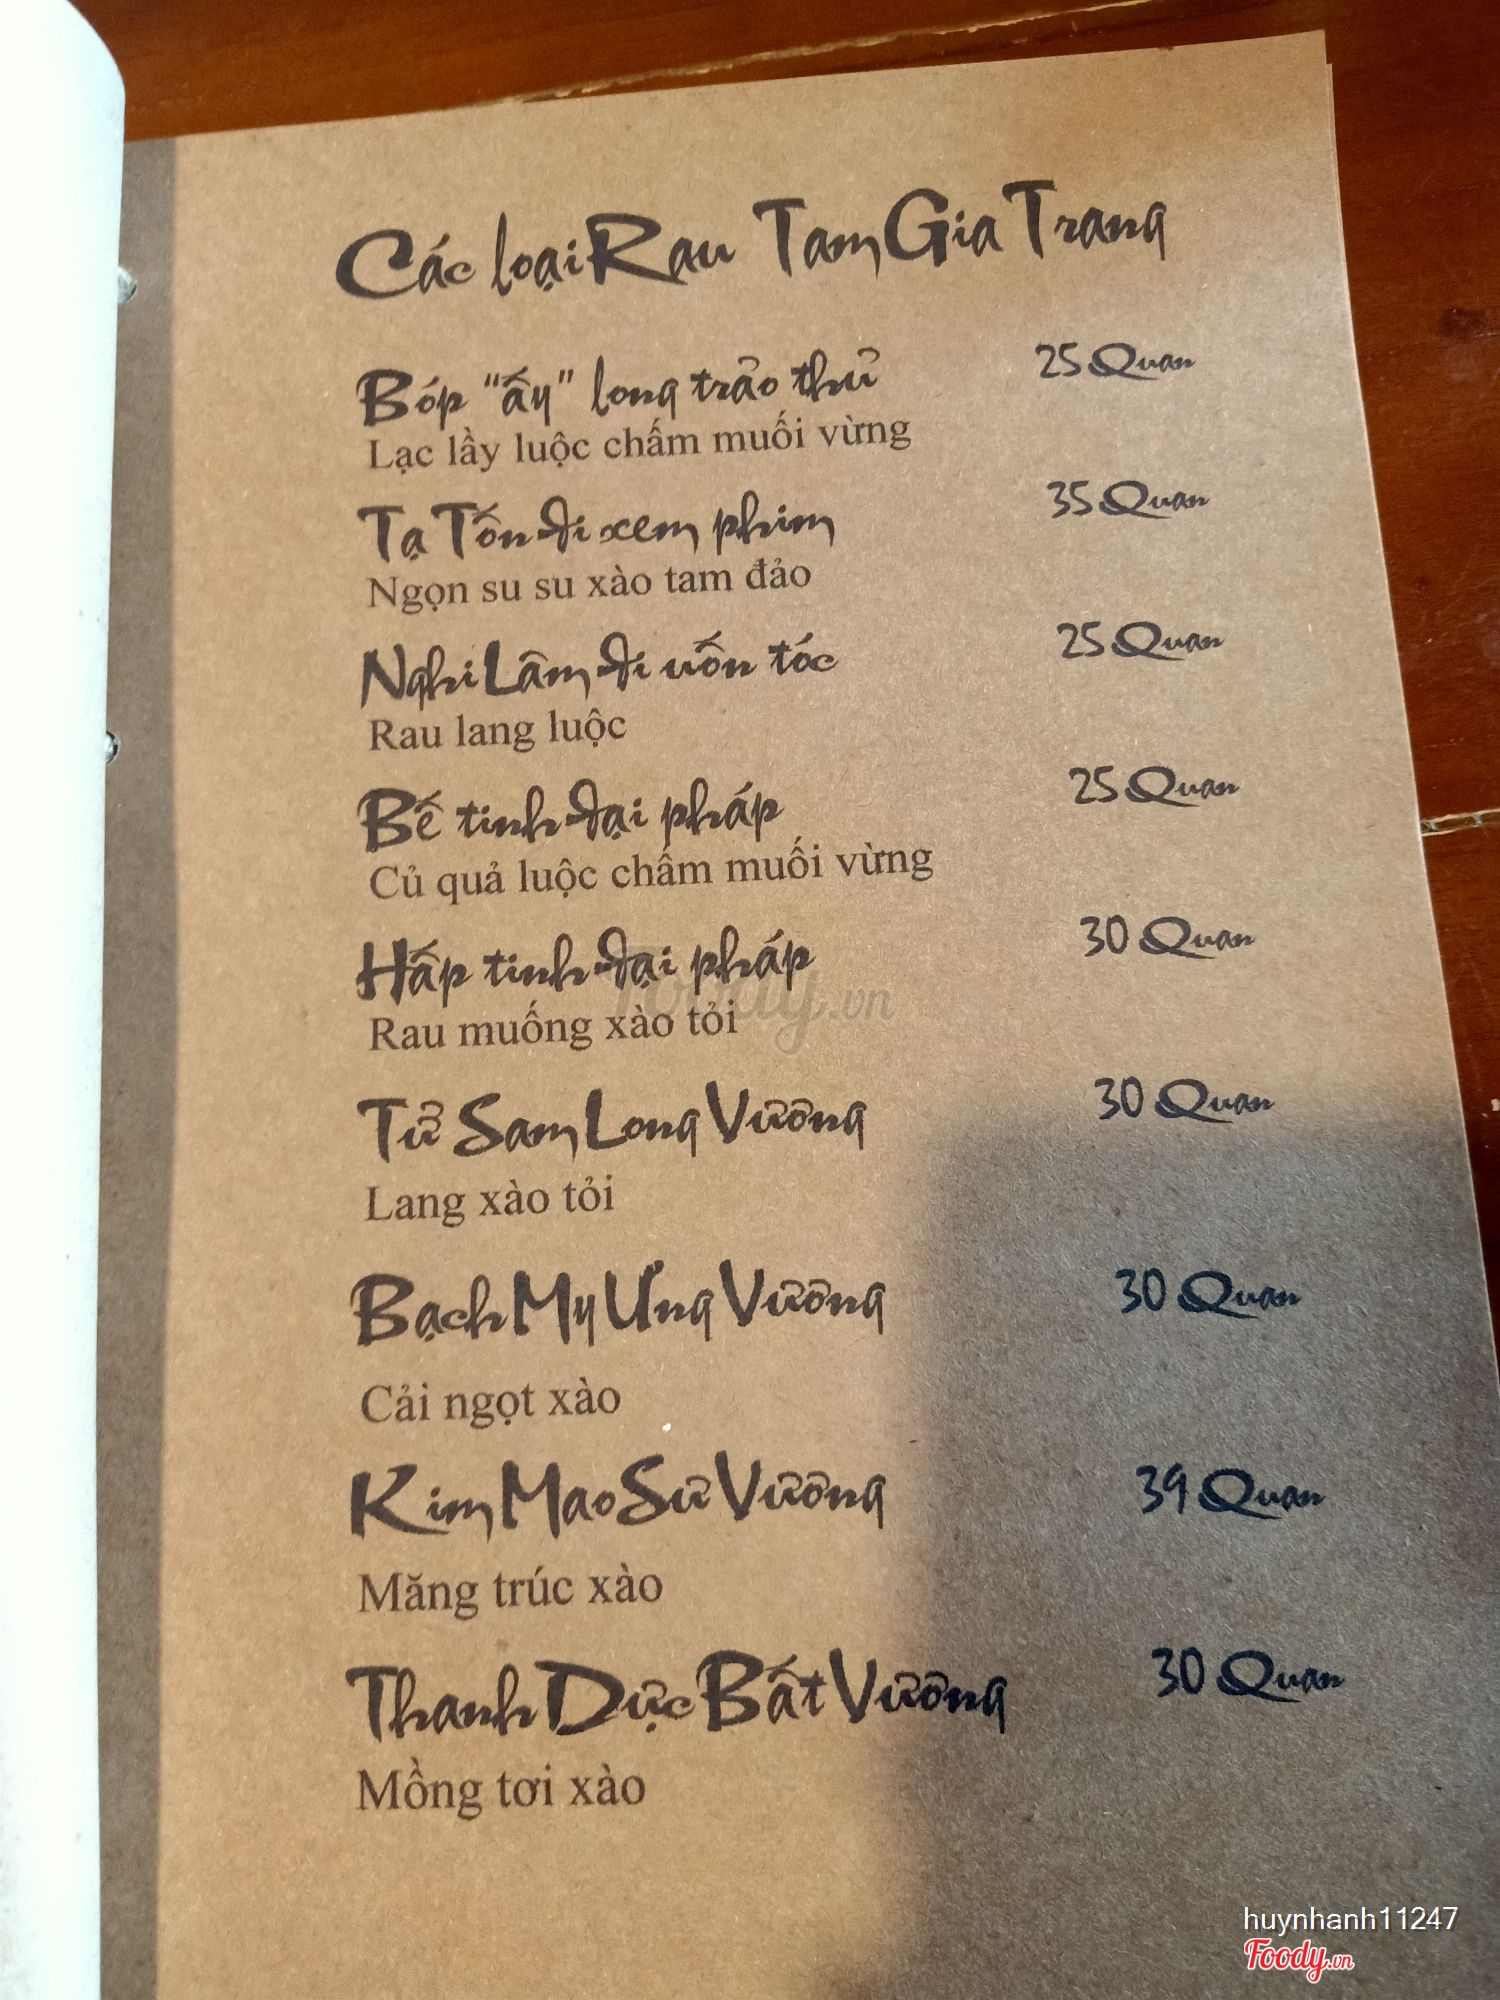 Các loại Rau Tam Gia Trang
Bóp "ấy" long trảo thủ 25 Quan
Lạc lầy luộc chấm muối vừng
Tạ Tốn đi xem phim 35 Quan
Ngọn su su xào tam đảo
Nghi Lâm đi uốn tóc 25 Quan
Rau lang luộc
Bế tinh đại pháp 25 Quan
Củ quả luộc chấm muối vừng
Hấp tinh đại pháp 30 Quan
Foody.vn
Rau muống xào tỏi
Tử Sam Long Vương 30 Quan
Lang xào tỏi
Bạch My Ưng Vương 30 Quan
Cải ngọt xào
Kim Mao Sư Vương 39 Quan
Măng trúc xào
Thanh Dực Bất Vương 30 Quan
Mồng tơi xào
huynhanh11247
Foody.vn